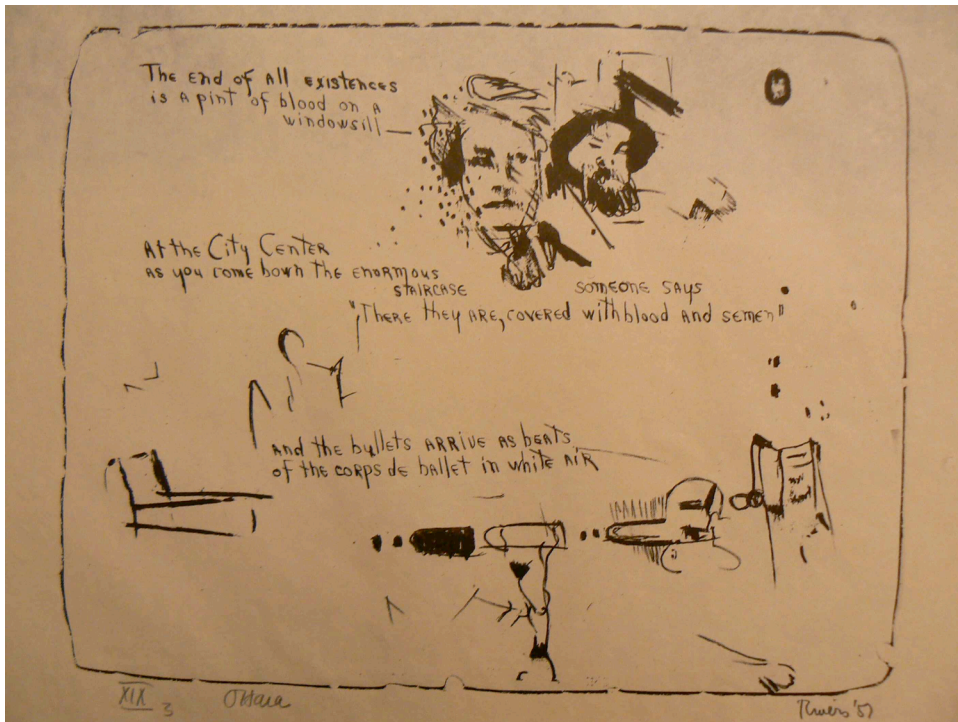 The end of all existences
is a pint of blood on a
windowsill —
At the City Center
as you come down the enormous
staircase
someone says
"There they are, covered with blood and semen"
and the bullets arrive as beats
of the corps de ballet in white air
XIX 3
O'Hara
Rivers '57